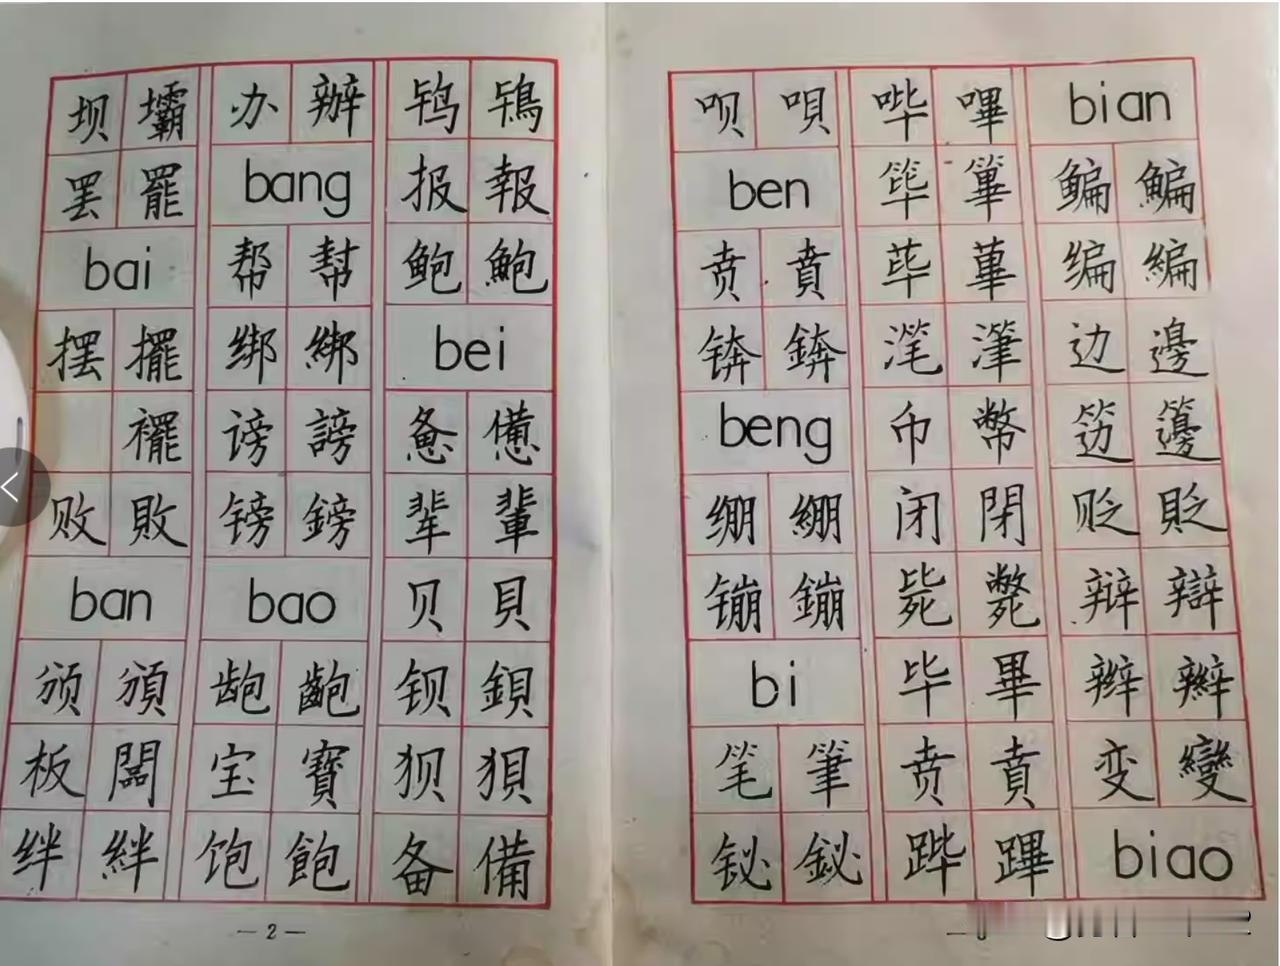 坝 壩
罢 罷
bai
摆 擺
襬
败 敗
ban
颁 頒
板 闆
绊 絆
办 辦
bang
帮 幇
绑 綁
谤 謗
镑 鎊
bao
龅 齙
宝 寶
饱 飽
鸨 鴇
报 報
鲍 鮑
bei
惫 憊
辈 輩
贝 貝
钡 鋇
狈 狽
备 備
— 2 —
呗 唄
ben
贲 賁
锛 錛
beng
绷 綳
镚 鏰
bi
笔 筆
铋 鉍
哔 嗶
筚 篳
荜 蓽
滗 潷
币 幣
闭 閉
毙 斃
毕 畢
贲 賁
跸 蹕
bian
鳊 鯿
编 編
边 邊
笾 籩
贬 貶
辩 辯
辫 辮
变 變
biao